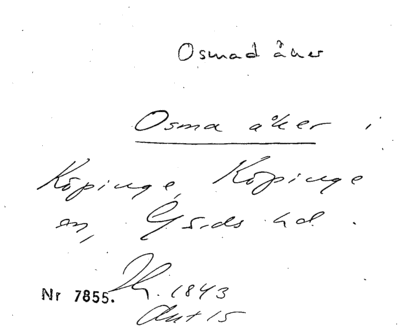 Osmad åker
Osma åker i
Köpinge, Köpinge
sn, Gärds hd.
Nr 7855. 1843
Akt 15